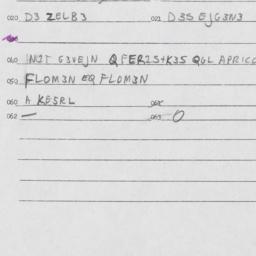 020 D3 ZELB3 021 D3S EJG3N3
040 IN2T G3VEJN QFER2S+K3S QGL APRICO
050 FLOM3N EQ FLOM3N
060 A KESRL
062 — 063 O